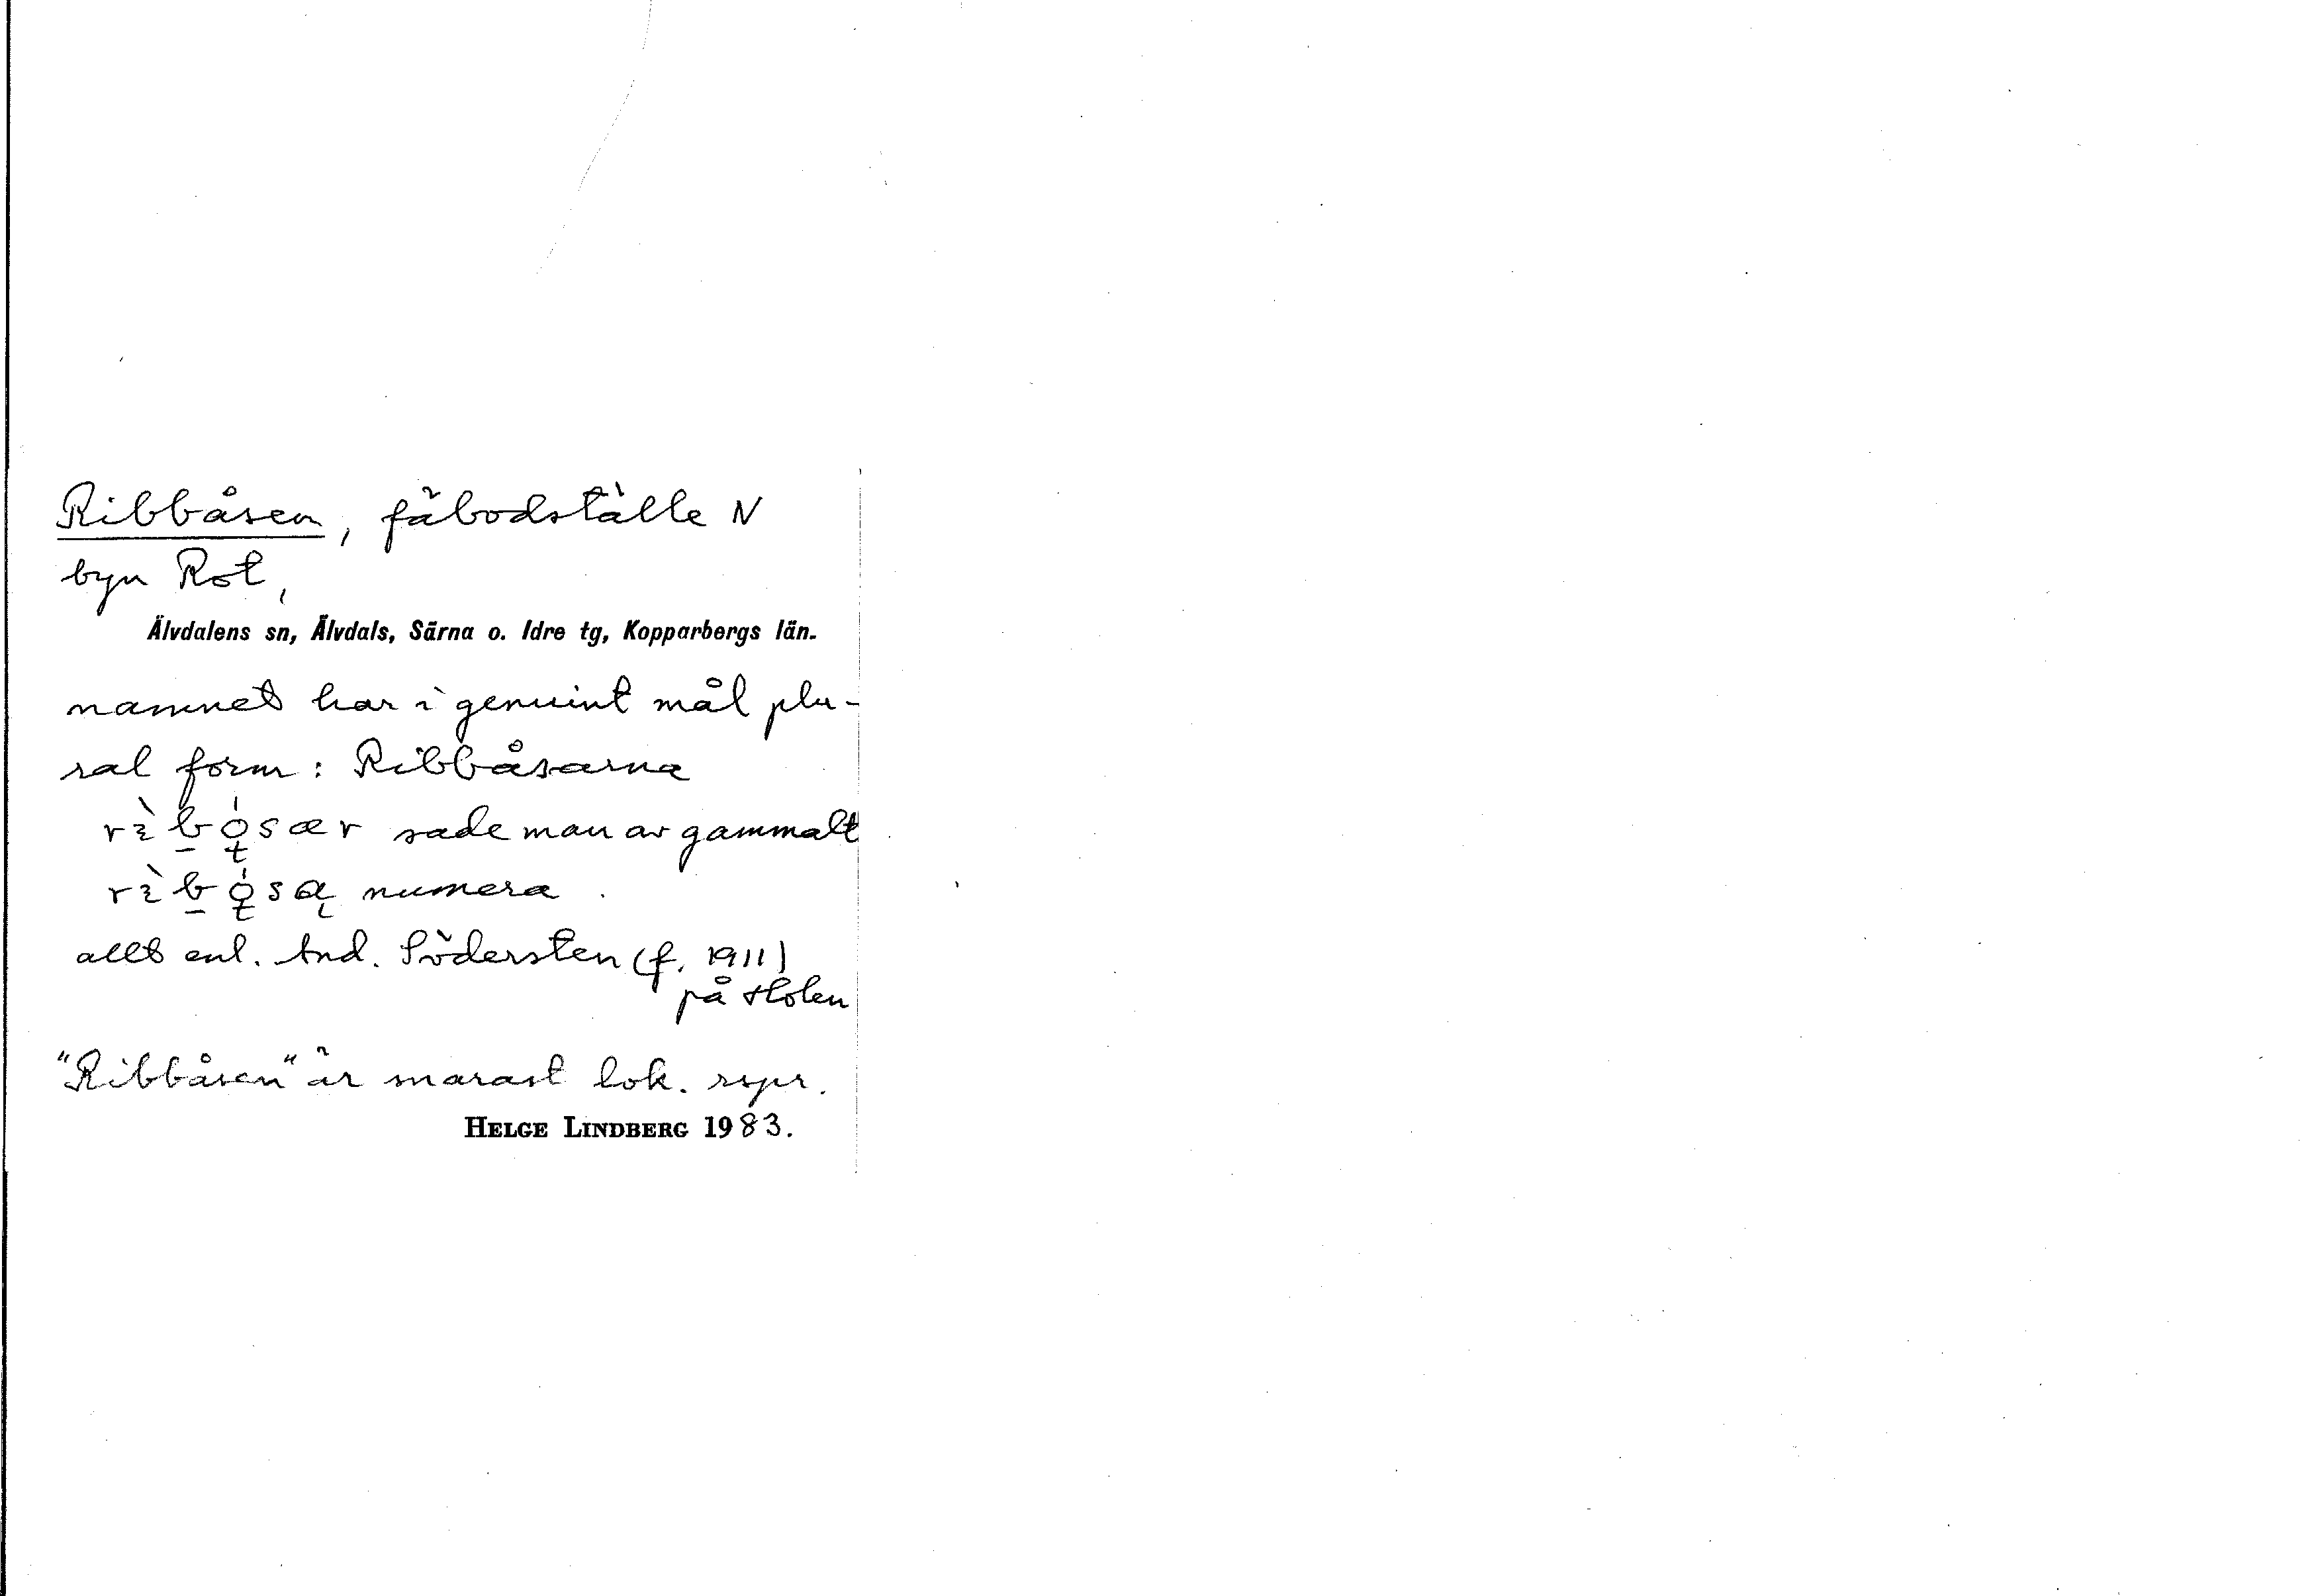 Ribbåsen, fäbodställe N
byn Rot,
Älvdalens sn, Älvdals, Särna o. Idre tg, Kopparbergs län.
namnet har i genuint mål plu-
ral form: Ribbåsarna
sade man av gammalt
numera.
allt enl. And. Södersten (f. 1911)
på Holen
"Ribbåsen" är snarast lok. rspr.
HELGE LINDBERG 1983.